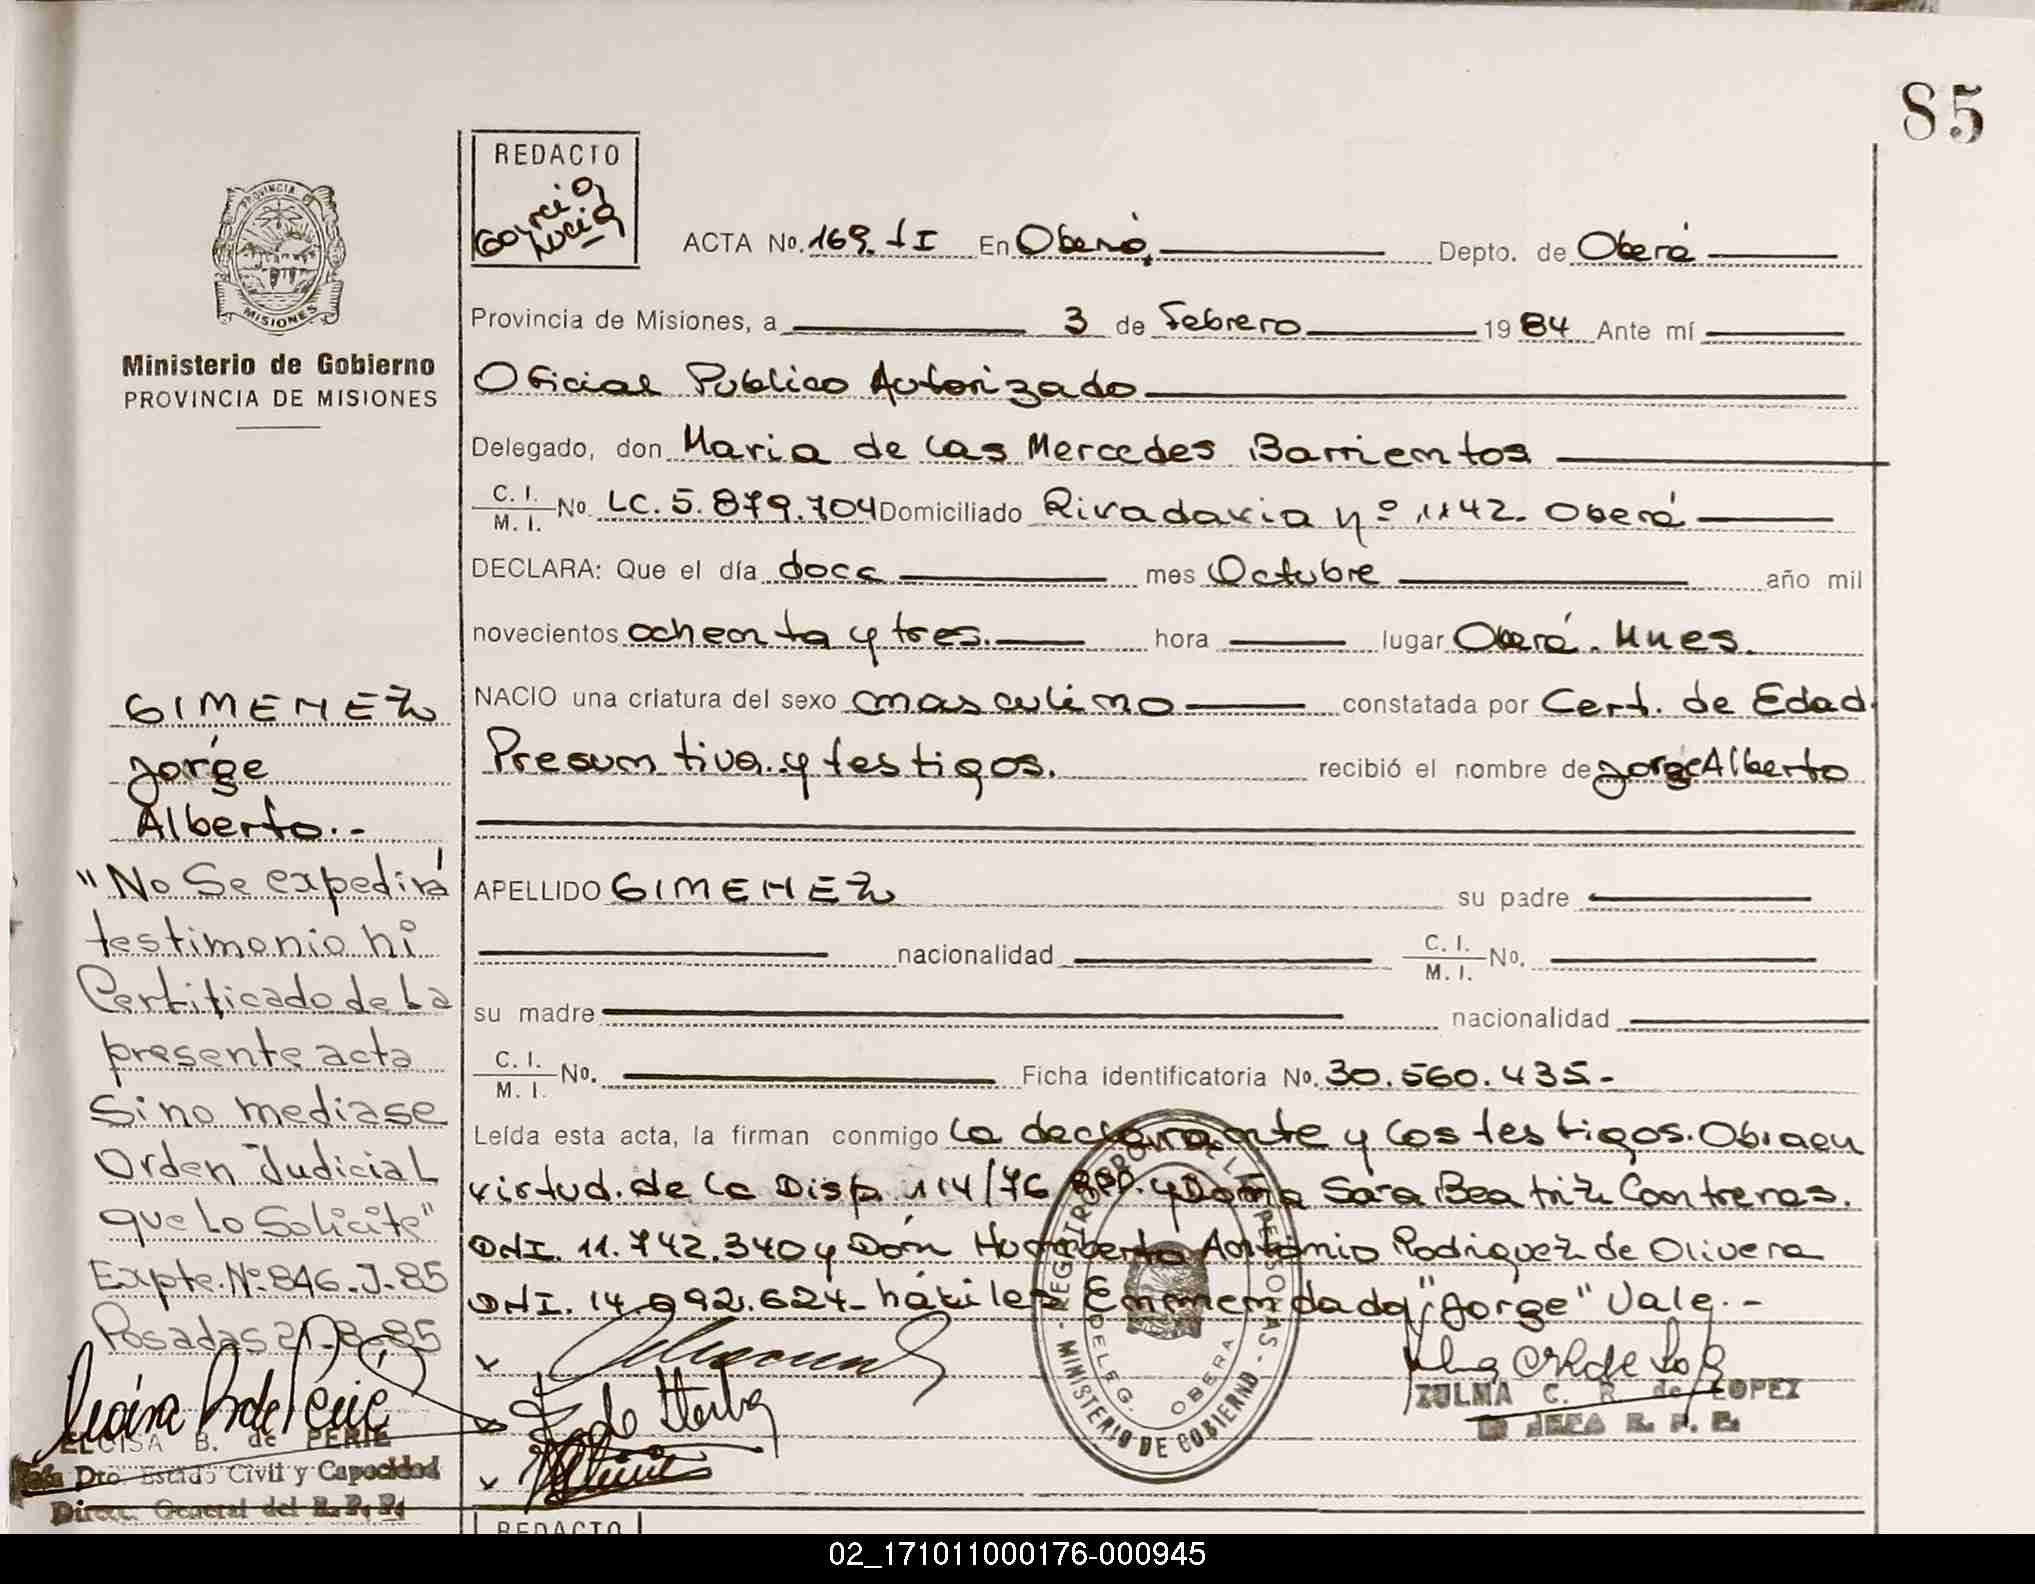 85
REDACTO
García
Lucía
ACTA No. 169. TI En Oberá, Depto. de Oberá
PROVINCIA DE
MISIONES
Provincia de Misiones, a 3 de Febrero 1984 Ante mí
Ministerio de Gobierno
PROVINCIA DE MISIONES
Oficial Publico Autorizado
Delegado, don Maria de las Mercedes Barrientos
C. I.
M. I. No. LC. 5.879.704 Domiciliado Rivadavia nº 1142. Oberá
DECLARA: Que el día doce mes Octubre año mil
novecientos ochenta y tres. hora lugar Oberá. Mnes.
NACIO una criatura del sexo masculino constatada por Cert. de Edad
Presuntiva y testigos. recibió el nombre de Jorge Alberto
APELLIDO GIMENEZ su padre
nacionalidad C. I.
M. I. No.
su madre nacionalidad
C. I.
M. I. No. Ficha identificatoria No. 30.560.435.-
Leída esta acta, la firman conmigo la declarante y los testigos. Obra en
virtud. de la Disp. 114/76 RPP. y Doña Sara Beatriz Contreras.
DNI. 11.742.340 y Don Humberto Antonio Rodriguez de Olivera
DNI. 14.092.624- hábiles Enmendado "Jorge" Vale.-
GIMENEZ
Jorge
Alberto.-
"No Se expedirá
testimonio ni
Certificado de La
presente acta
Sino mediase
Orden Judicial
que Lo Solicite"
Expte. Nº 846-J-85
Posadas 21-8-85
ELOISA B. de PERIE
Jefa Dto. Estado Civil y Capacidad
Direc. General del R. P. P.
REGISTRO PROV. DE LAS PERSONAS
MINISTERIO DE GOBIERNO
DELEG. OBERA
ZULMA C. R. de LOPEZ
JEFA R. P. P.
REDACTO
02_171011000176-000945